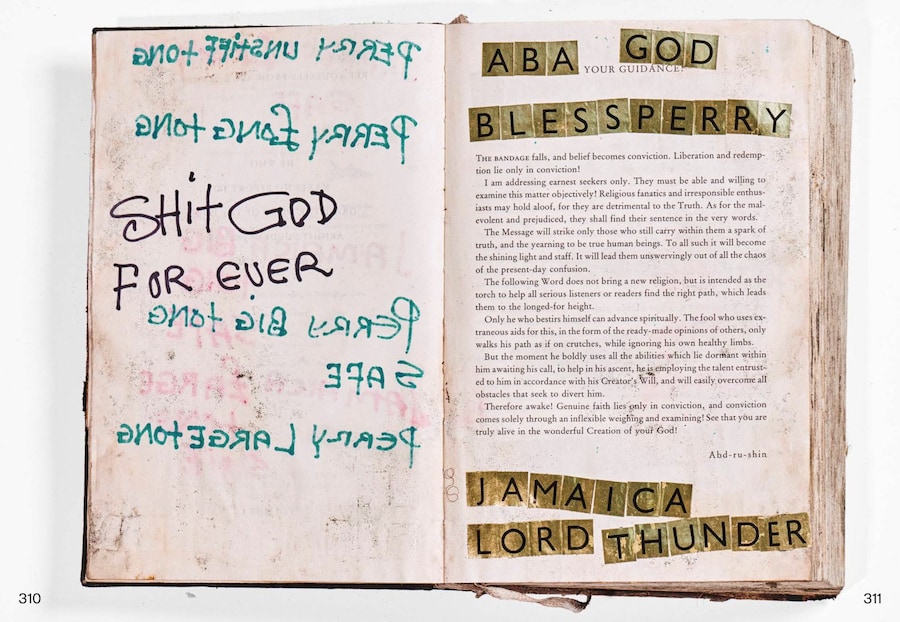 PERRY UNSTIFF tONG
PERRY LONG tONG
SHit GOD
FOR EVER
PERRY BIG tONG
SAFE
PERRY LARGE tONG
310
ABA GOD
YOUR GUIDANCE!
BLESSPERRY
THE BANDAGE falls, and belief becomes conviction. Liberation and redemp-
tion lie only in conviction!
I am addressing earnest seekers only. They must be able and willing to
examine this matter objectively! Religious fanatics and irresponsible enthus-
iasts may hold aloof, for they are detrimental to the Truth. As for the mal-
evolent and prejudiced, they shall find their sentence in the very words.
The Message will strike only those who still carry within them a spark of
truth, and the yearning to be true human beings. To all such it will become
the shining light and staff. It will lead them unswervingly out of all the chaos
of the present-day confusion.
The following Word does not bring a new religion, but is intended as the
torch to help all serious listeners or readers find the right path, which leads
them to the longed-for height.
Only he who bestirs himself can advance spiritually. The fool who uses ex-
traneous aids for this, in the form of the ready-made opinions of others, only
walks his path as if on crutches, while ignoring his own healthy limbs.
But the moment he boldly uses all the abilities which lie dormant within
him awaiting his call, to help in his ascent, he is employing the talent entrust-
ed to him in accordance with his Creator's Will, and will easily overcome all
obstacles that seek to divert him.
Therefore awake! Genuine faith lies only in conviction, and conviction
comes solely through an inflexible weighing and examining! See that you are
truly alive in the wonderful Creation of your God!
Abd-ru-shin
JAMAICA
LORD THUNDER
311